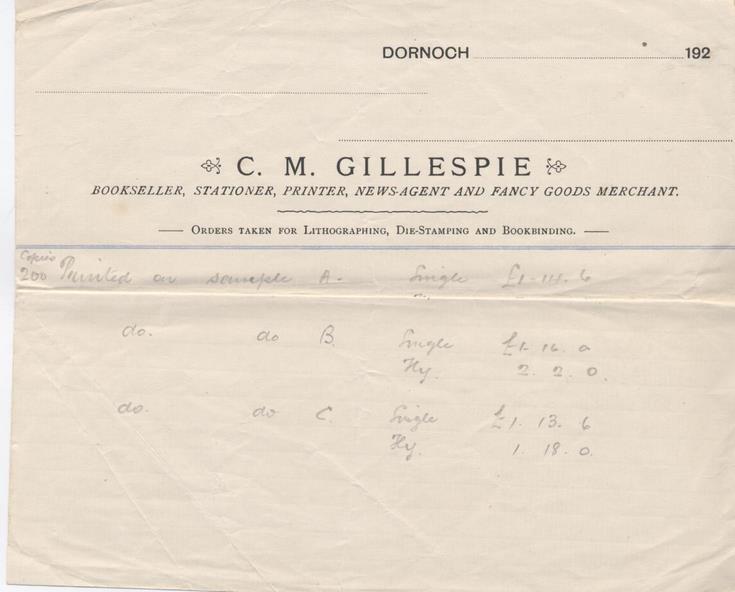 DORNOCH 192
C. M. GILLESPIE
BOOKSELLER, STATIONER, PRINTER, NEWS-AGENT AND FANCY GOODS MERCHANT.
ORDERS TAKEN FOR LITHOGRAPHING, DIE-STAMPING AND BOOKBINDING.
Copies
200 Printed on sample A. Single £1. 14. 6
do. do B. Single £1. 16. 0
Fly. 2. 2. 0.
do. do C. Single £1. 13. 6
Fly. 1. 18. 0.